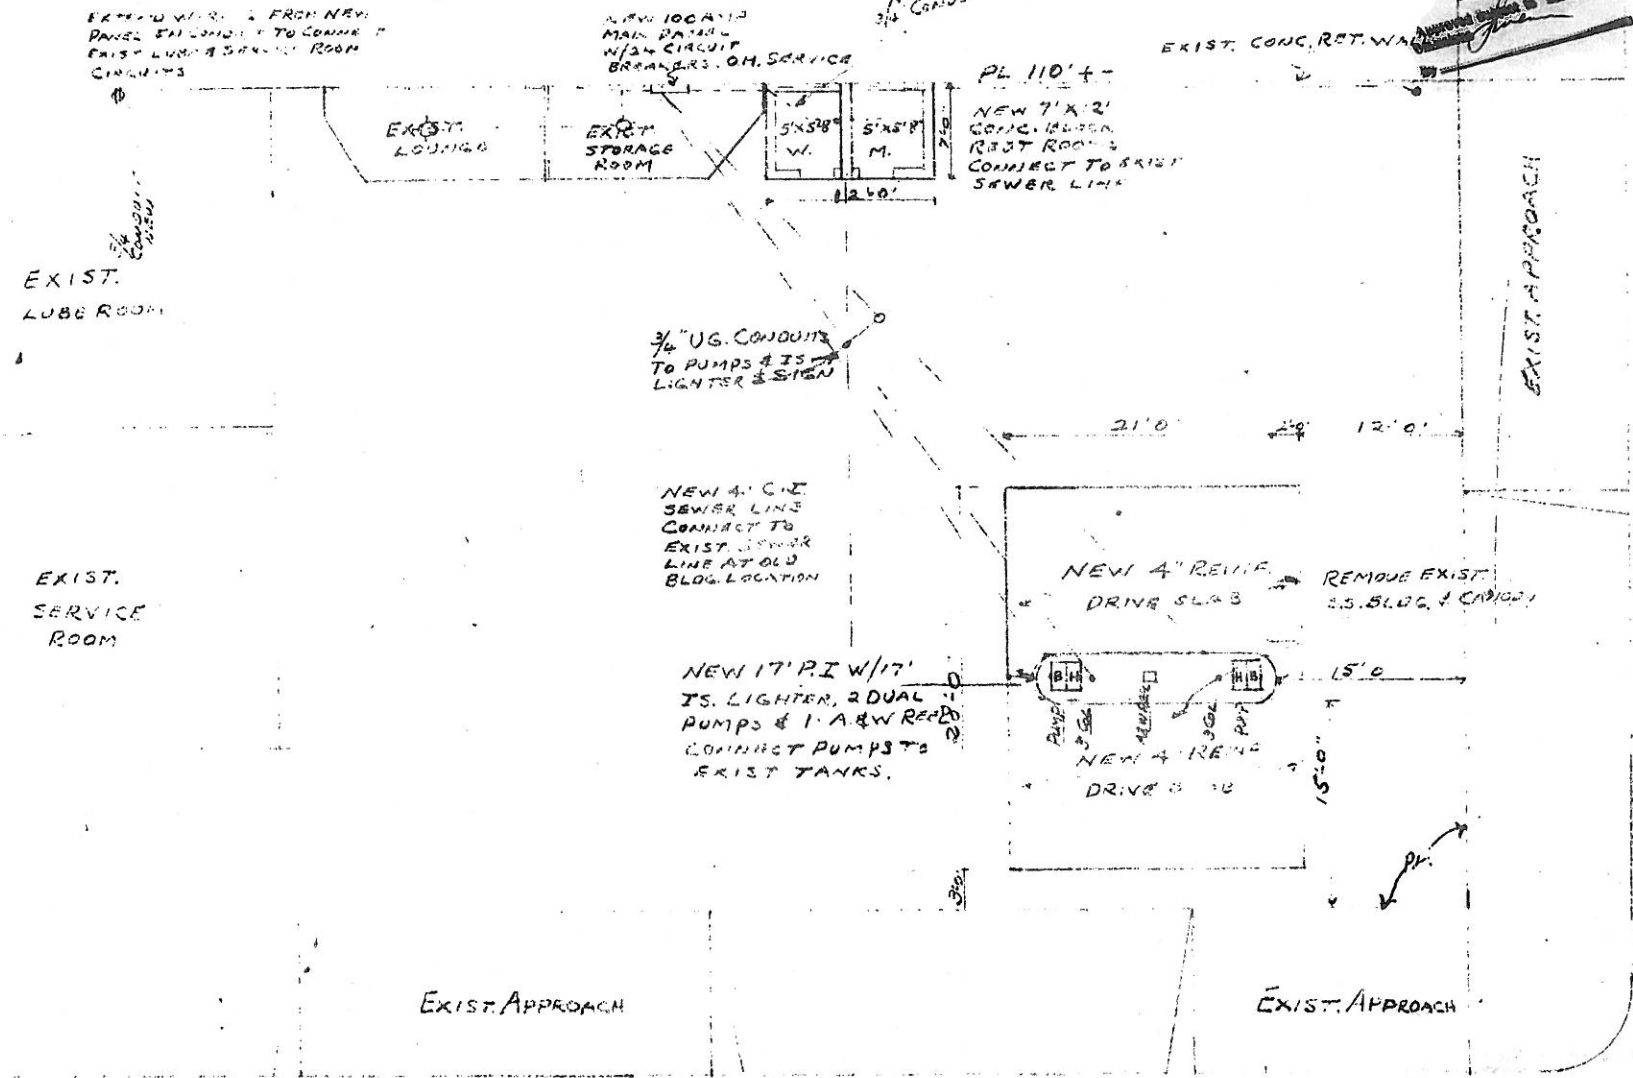 EXTEND WIRING FROM NEW
PANEL IN CONDUIT TO CONNECT
EXIST LUBE & SERVICE ROOM
CIRCUITS
NEW 100 AMP
MAIN PANEL
W/24 CIRCUIT
BREAKERS. O.H. SERVICE
3/4" CONDUIT
EXIST. CONC. RET. WALL
PL 110' + -
EXIST.
LOUNGE
EXIST
STORAGE
ROOM
5'X5'8"
W.
5'X5'8"
M.
7'0
12'0'
NEW 7'X12'
CONC. BLOCK
REST ROOMS
CONNECT TO EXIST
SEWER LINE
3/4
CONDUIT
NEW
EXIST.
LUBE ROOM
EXIST. APPROACH
3/4" UG. CONDUITS
TO PUMPS & IS
LIGHTER & SIGN
21'0'
2'0'
12'0'
NEW 4" C.I.
SEWER LINE
CONNECT TO
EXIST. SEWER
LINE AT OLD
BLDG. LOCATION
EXIST.
SERVICE
ROOM
NEW 4" REINF.
DRIVE SLAB
REMOVE EXIST.
S.S. BLDG. & CANOPY
NEW 17' P.I W/17'
IS. LIGHTER, 2 DUAL
PUMPS & 1 A&W REEL
CONNECT PUMPS TO
EXIST TANKS.
B H
H B
PUMP
3" COL
A&W REEL
3" COL
PUMP
15'0
NEW 4" REINF
DRIVE SLAB
15'-0"
3'0'
PL.
EXIST. APPROACH
EXIST. APPROACH